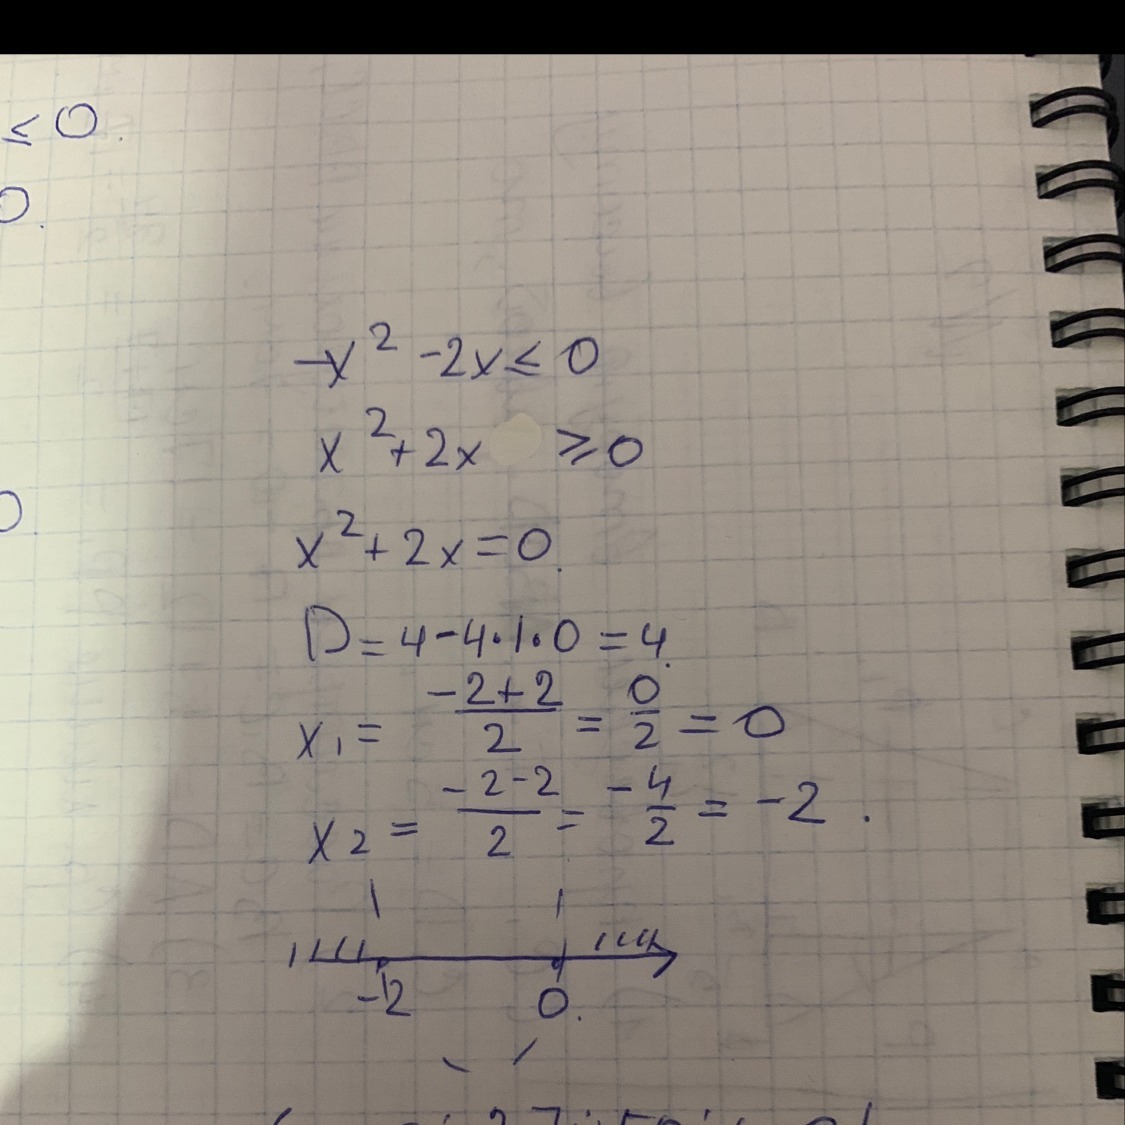 ≤ 0.
0.
-x² - 2x ≤ 0
x² + 2x ≥ 0
0
x² + 2x = 0.
D = 4 - 4·1·0 = 4.
x₁ = (-2+2)/2 = 0/2 = 0
x₂ = (-2-2)/2 = -4/2 = -2.
-2 0.